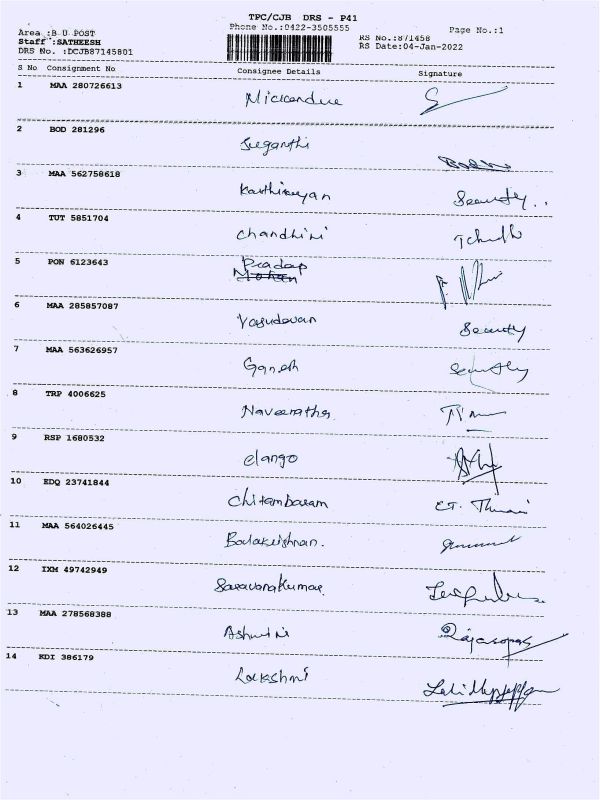 TPC/CJB DRS - P41
Phone No.:0422-3505555
Page No.:1
Area :B U POST
Staff :SATHEESH
DRS No. :DCJB87145801
RS No.:871458
RS Date:04-Jan-2022
S No Consignment No Consignee Details Signature
1 MAA 280726613
2 BOD 281296 Suganthi
3 MAA 562758618 Karthikeyan Security..
4 TUT 5851704 Chandhini
5 PON 6123643 Pradap
Mohan
6 MAA 285857087 Vasudevan Security
7 MAA 563626957 Ganesh Security
8 TRP 4006625
9 RSP 1680532 elango
10 EDQ 23741844 Chitambaram
11 MAA 564026445 Balakrishnan.
12 IXM 49742949 Saravanakumar
13 MAA 278568388 Ashwini Rajagopal
14 KDI 386179 Lakshmi